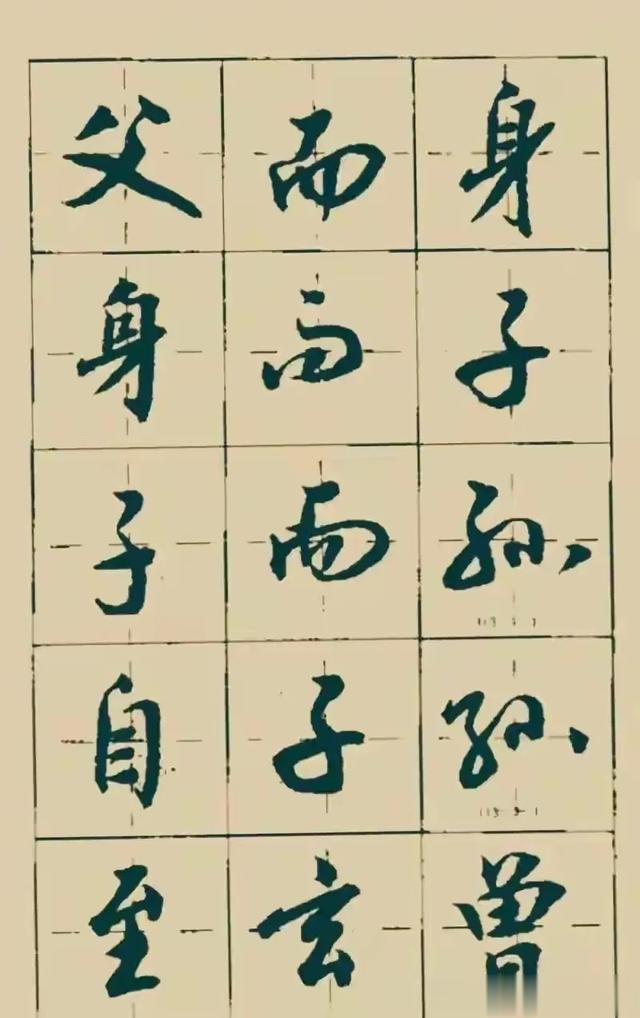 父而身
身而子
子而孫
自子孫
至玄曾